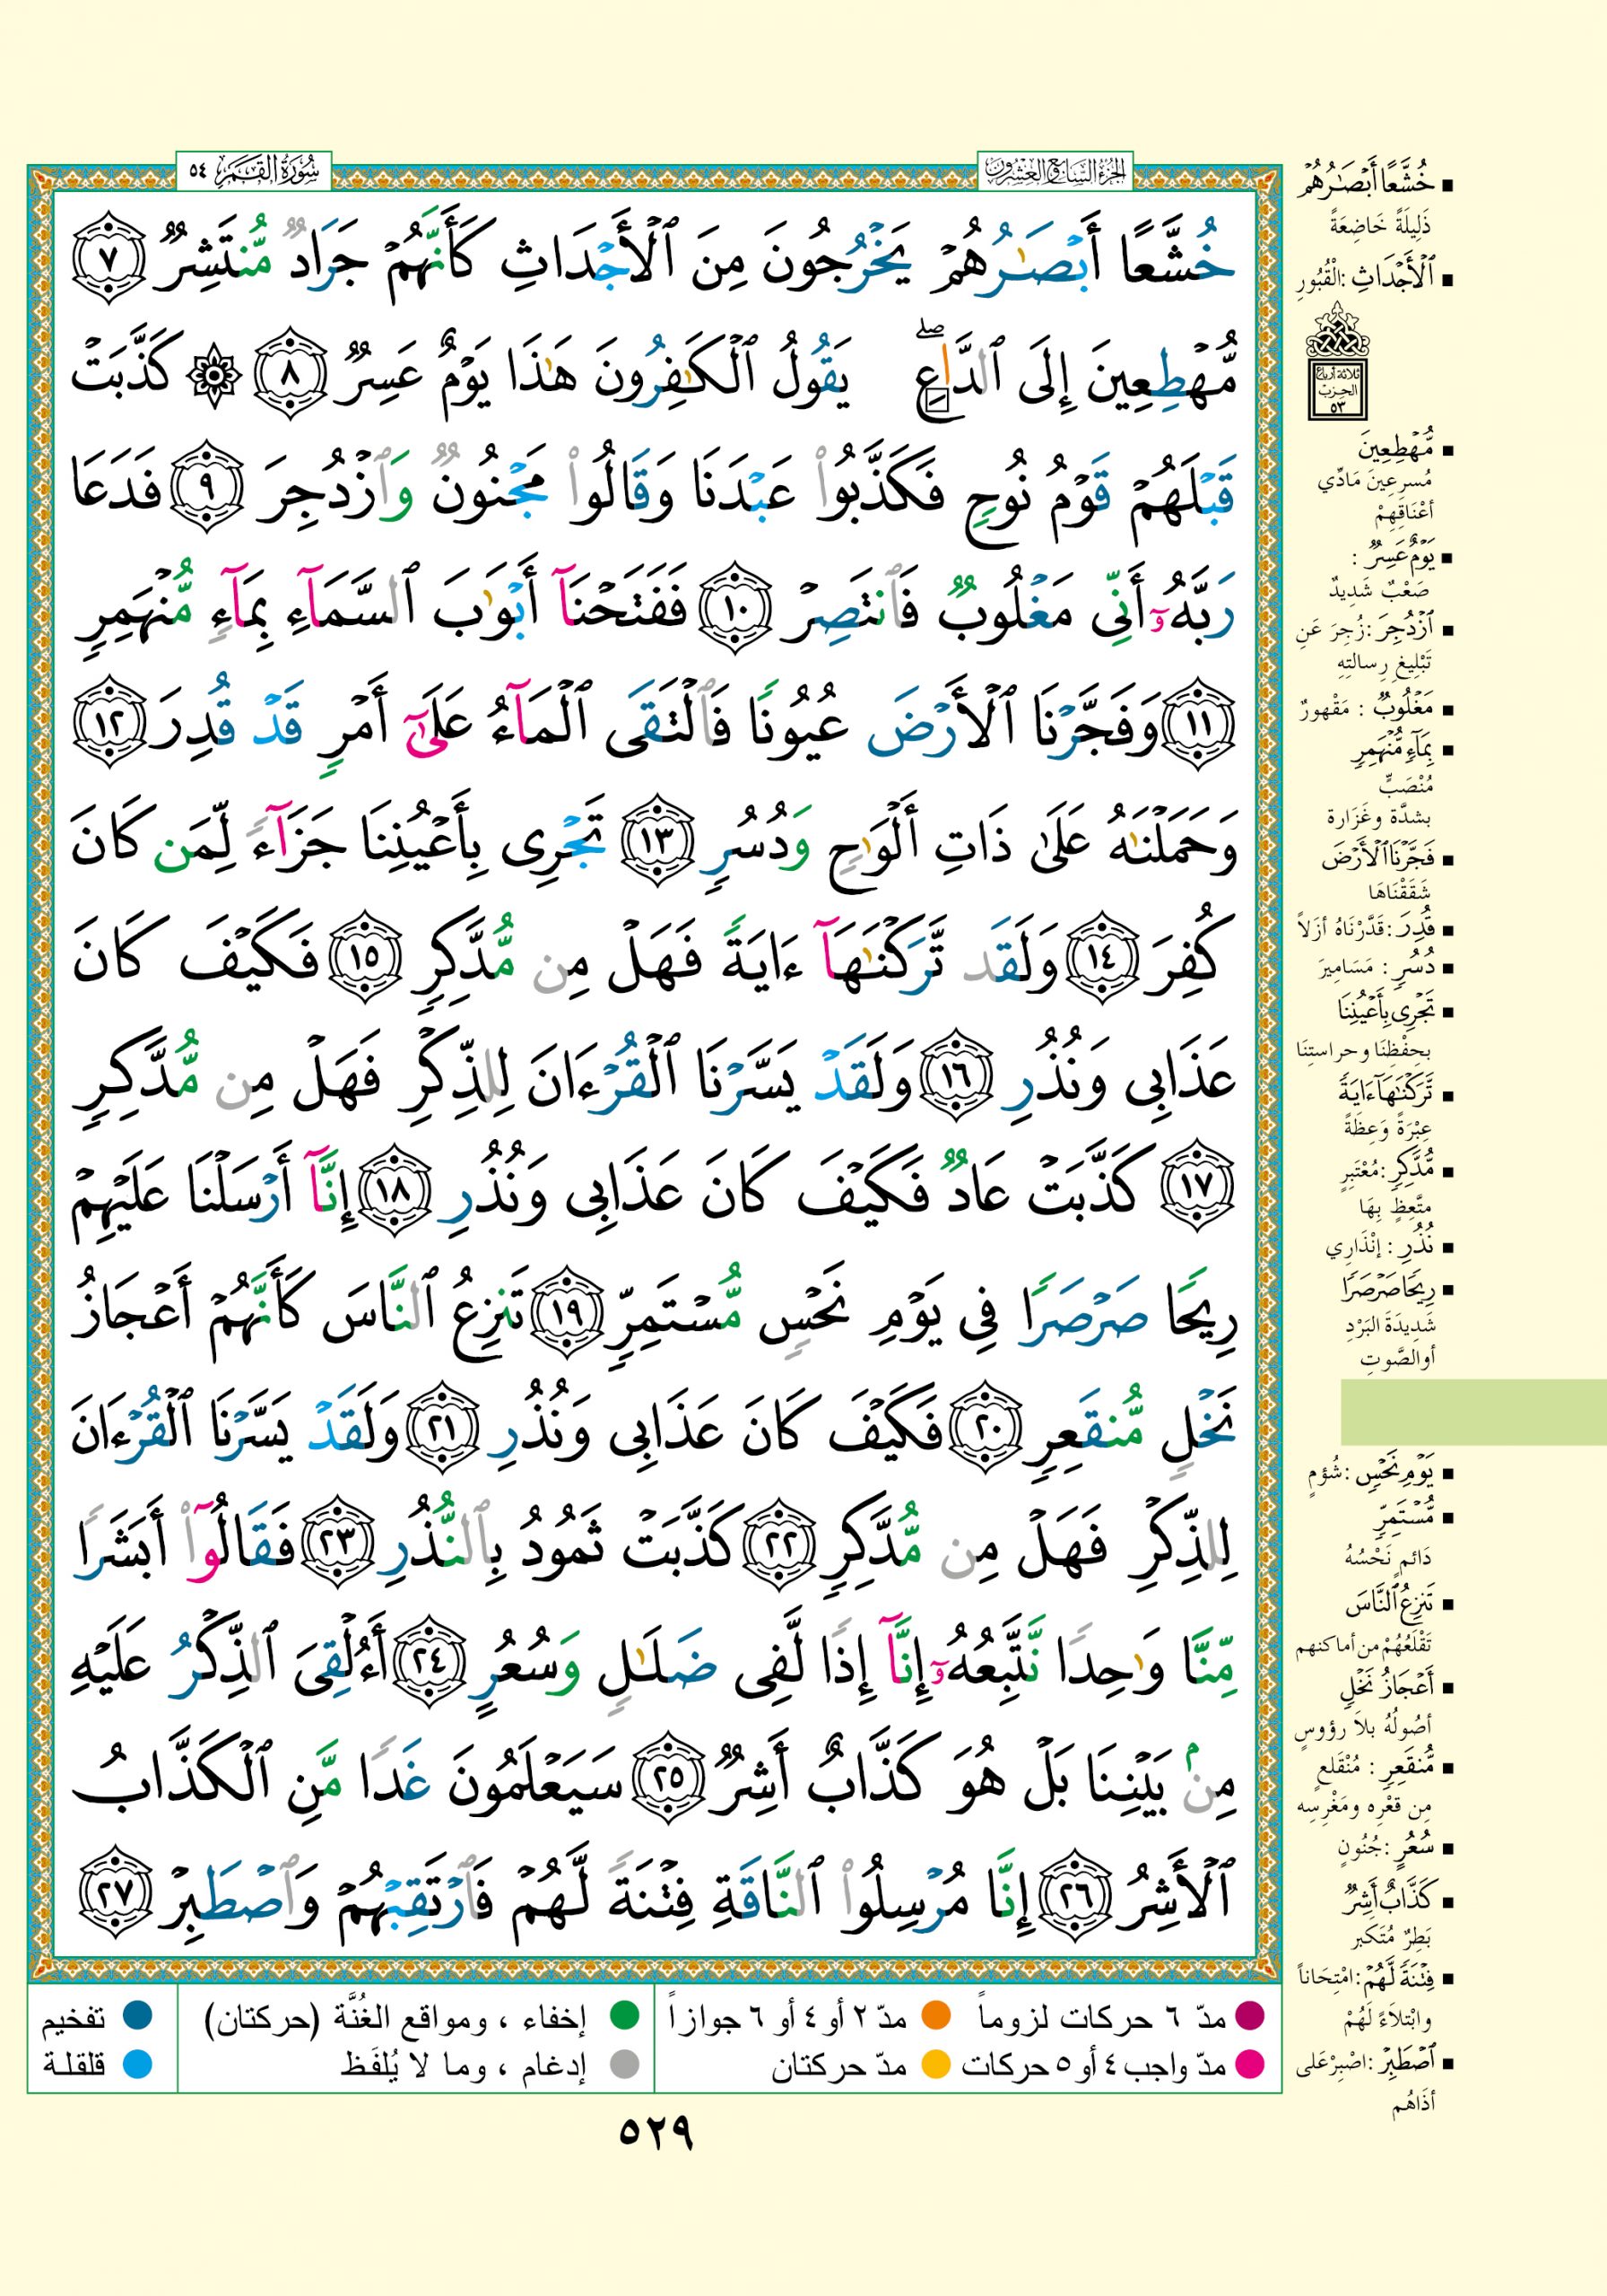 سُورَةُ القَمَر ٥٤
الجُزْءُ السَّابِعُ وَالعِشْرُون
خُشَّعًا أَبْصَٰرُهُمْ يَخْرُجُونَ مِنَ ٱلْأَجْدَاثِ كَأَنَّهُمْ جَرَادٌ مُّنتَشِرٌ ٧
مُّهْطِعِينَ إِلَى ٱلدَّاعِ ۖ يَقُولُ ٱلْكَٰفِرُونَ هَٰذَا يَوْمٌ عَسِرٌ ٨ ۞ كَذَّبَتْ
قَبْلَهُمْ قَوْمُ نُوحٍ فَكَذَّبُوا۟ عَبْدَنَا وَقَالُوا۟ مَجْنُونٌ وَٱزْدُجِرَ ٩ فَدَعَا
رَبَّهُۥٓ أَنِّى مَغْلُوبٌ فَٱنتَصِرْ ١٠ فَفَتَحْنَآ أَبْوَٰبَ ٱلسَّمَآءِ بِمَآءٍ مُّنْهَمِرٍ
١١ وَفَجَّرْنَا ٱلْأَرْضَ عُيُونًا فَٱلْتَقَى ٱلْمَآءُ عَلَىٰٓ أَمْرٍ قَدْ قُدِرَ ١٢
وَحَمَلْنَٰهُ عَلَىٰ ذَاتِ أَلْوَٰحٍ وَدُسُرٍ ١٣ تَجْرِى بِأَعْيُنِنَا جَزَآءً لِّمَن كَانَ
كُفِرَ ١٤ وَلَقَد تَّرَكْنَٰهَآ ءَايَةً فَهَلْ مِن مُّدَّكِرٍ ١٥ فَكَيْفَ كَانَ
عَذَابِى وَنُذُرِ ١٦ وَلَقَدْ يَسَّرْنَا ٱلْقُرْءَانَ لِلذِّكْرِ فَهَلْ مِن مُّدَّكِرٍ
١٧ كَذَّبَتْ عَادٌ فَكَيْفَ كَانَ عَذَابِى وَنُذُرِ ١٨ إِنَّآ أَرْسَلْنَا عَلَيْهِمْ
رِيحًا صَرْصَرًا فِى يَوْمِ نَحْسٍ مُّسْتَمِرٍّ ١٩ تَنزِعُ ٱلنَّاسَ كَأَنَّهُمْ أَعْجَازُ
نَخْلٍ مُّنقَعِرٍ ٢٠ فَكَيْفَ كَانَ عَذَابِى وَنُذُرِ ٢١ وَلَقَدْ يَسَّرْنَا ٱلْقُرْءَانَ
لِلذِّكْرِ فَهَلْ مِن مُّدَّكِرٍ ٢٢ كَذَّبَتْ ثَمُودُ بِٱلنُّذُرِ ٢٣ فَقَالُوٓا۟ أَبَشَرًا
مِّنَّا وَٰحِدًا نَّتَّبِعُهُۥٓ إِنَّآ إِذًا لَّفِى ضَلَٰلٍ وَسُعُرٍ ٢٤ أَءُلْقِىَ ٱلذِّكْرُ عَلَيْهِ
مِنۢ بَيْنِنَا بَلْ هُوَ كَذَّابٌ أَشِرٌ ٢٥ سَيَعْلَمُونَ غَدًا مَّنِ ٱلْكَذَّابُ
ٱلْأَشِرُ ٢٦ إِنَّا مُرْسِلُوا۟ ٱلنَّاقَةِ فِتْنَةً لَّهُمْ فَٱرْتَقِبْهُمْ وَٱصْطَبِرْ ٢٧
خُشَّعًا أَبْصَٰرُهُمْ
ذَلِيلَةً خَاضِعَةً
ٱلْأَجْدَاثِ : الْقُبُورِ
ثلاثة أرباع
الحزب
٥٣
مُّهْطِعِينَ
مُسرِعِينَ مَادِّي
أعْنَاقِهِمْ
يَوْمٌ عَسِرٌ :
صَعْبٌ شَدِيدٌ
ٱزْدُجِرَ : زُجِرَ عَنِ
تَبْلِيغِ رِسالتِهِ
مَغْلُوبٌ : مَقْهورٌ
بِمَآءٍ مُّنْهَمِرٍ
مُنْصَبٍّ
بشدَّة وغَزَارة
فَجَّرْنَا ٱلْأَرْضَ
شَقَقْنَاهَا
قُدِرَ : قَدَّرْنَاهُ أزَلاً
دُسُرٍ : مَسَامِيرَ
تَجْرِى بِأَعْيُنِنَا
بحِفْظِنَا وحراستِنَا
تَّرَكْنَٰهَآ ءَايَةً
عِبْرَةً وَعِظَةً
مُّدَّكِرٍ : مُعْتَبِرٍ
متَّعِظٍ بِهَا
نُذُرِ : إنْذَارِي
رِيحًا صَرْصَرًا
شَدِيدَةَ البَرْدِ
أو الصَّوتِ
يَوْمِ نَحْسٍ : شُؤمٍ
مُّسْتَمِرٍّ
دَائمٍ نَحْسُهُ
تَنزِعُ ٱلنَّاسَ
تَقْلَعُهُمْ من أماكنهم
أَعْجَازُ نَخْلٍ
أصُولُهُ بلاَ رؤوسٍ
مُّنقَعِرٍ : مُنْقَلعٍ
مِن قعْرِه ومَغْرِسِه
سُعُرٍ : جُنُونٍ
كَذَّابٌ أَشِرٌ
بَطِرٌ مُتَكبر
فِتْنَةً لَّهُمْ : امْتِحَاناً
وابْتلاَءً لَهُمْ
ٱصْطَبِرْ : اصْبِرْ عَلى
أذَاهُم
مدّ ٦ حركات لزوماً
مدّ ٢ أو ٤ أو ٦ جوازاً
إخفاء ، ومواقع الغُنَّة (حركتان)
تفخيم
مدّ واجب ٤ أو ٥ حركات
مدّ حركتان
إدغام ، وما لا يُلفَظ
قلقلة
٥٢٩